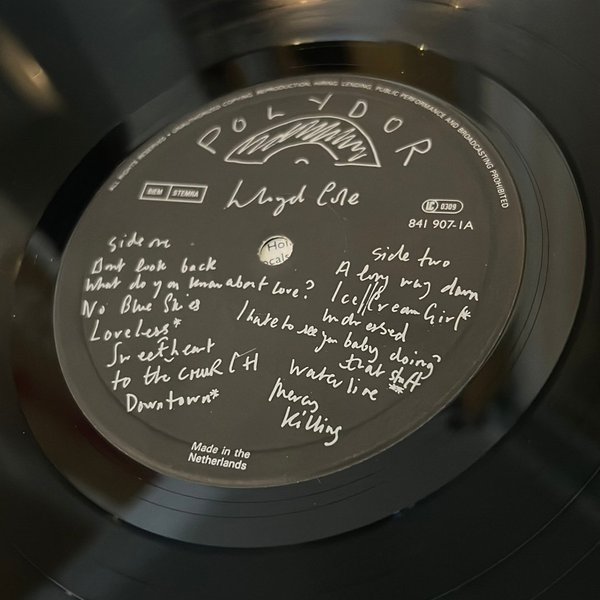 ALL RIGHTS RESERVED • UNAUTHORISED COPYING, REPRODUCTION, HIRING, LENDING, PUBLIC PERFORMANCE AND BROADCASTING PROHIBITED
POLYDOR
BIEM STEMRA
Lloyd Cole
LC 0309
841 907-1A
Hol
ocals
side one
Dont look back
What do you know about love?
No Blue Skies
Loveless*
Sweetheart
to the CHURCH
Downtown*
side two
A long way down
Ice Cream Girl*
undressed
I hate to see you baby doing
that stuff
Waterline
Mercy
Killing
Made in the
Netherlands